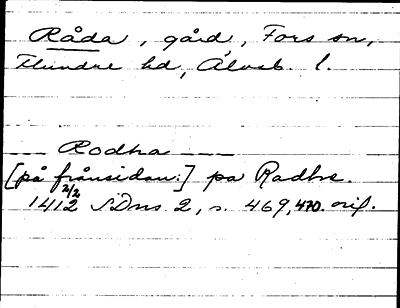 Råda, gård, Fors sn,
Flundre hd, Älvsb. l.
Rodha
[på frånsidan:] pa Radhe.
1412 2/2 SDns 2, s. 469, 470. orig.